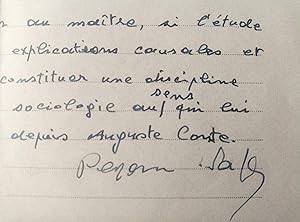 au maître, si l'étude
explications causales et
constituer une discipline
sens
sociologie au qui lui
depuis Auguste Comte.